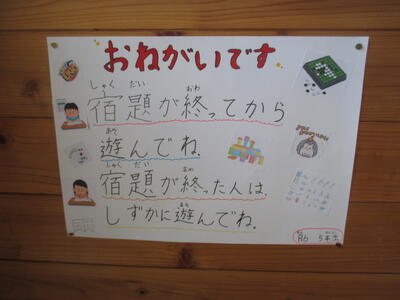 おねがいです
しゅくだい　おわ
宿題が終ってから
あそ
遊んでね。
しゅくだい　おわ
宿題が終った人は、
あそ
しずかに遊んでね。
R6